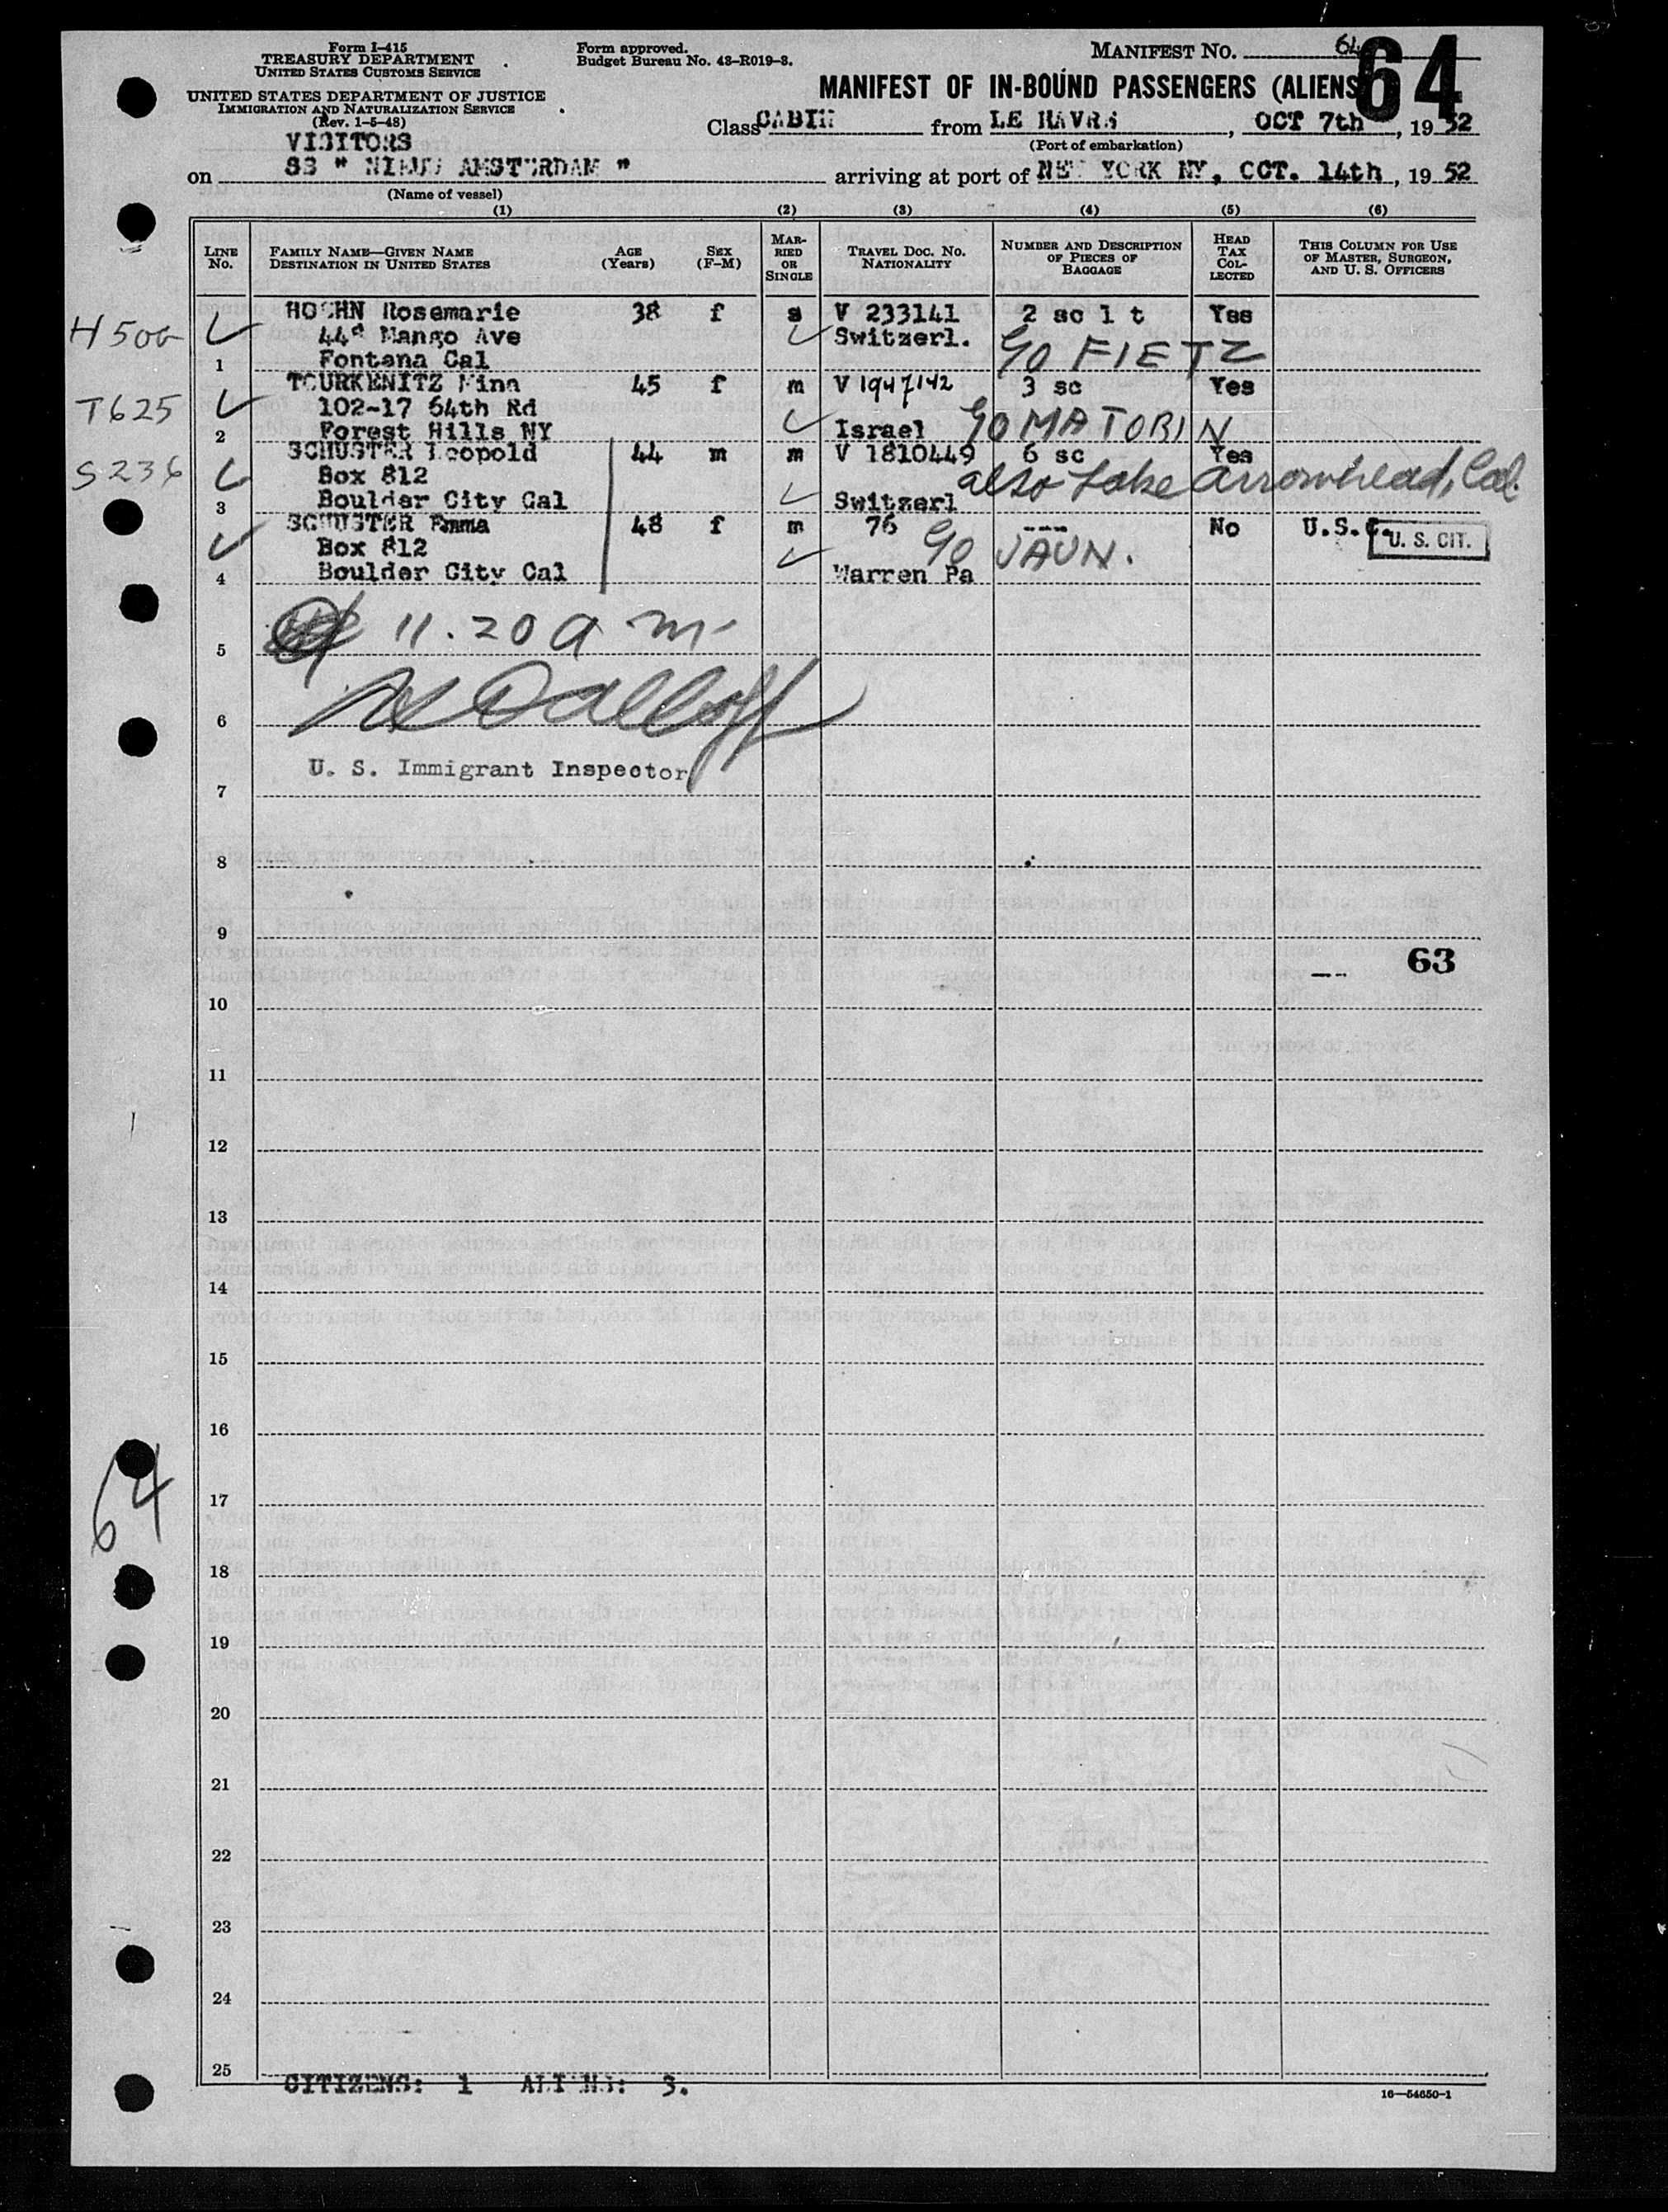 Form I-415
TREASURY DEPARTMENT
UNITED STATES CUSTOMS SERVICE
UNITED STATES DEPARTMENT OF JUSTICE
IMMIGRATION AND NATURALIZATION SERVICE
(Rev. 1-5-48)
Form approved.
Budget Bureau No. 43-R019-3.
MANIFEST NO. 64
64
MANIFEST OF IN-BOUND PASSENGERS (ALIENS
Class CABIN from LE HAVRE, OCT 7th, 1952
(Port of embarkation)
VISITORS
on SS " NIEUW AMSTERDAM " arriving at port of NEW YORK NY, OCT. 14th, 1952
(Name of vessel)
(1) (2) (3) (4) (5) (6)
LINE No. FAMILY NAME—GIVEN NAME DESTINATION IN UNITED STATES AGE (Years) SEX (F-M) MARRIED OR SINGLE TRAVEL DOC. NO. NATIONALITY NUMBER AND DESCRIPTION OF PIECES OF BAGGAGE HEAD TAX COLLECTED THIS COLUMN FOR USE OF MASTER, SURGEON, AND U. S. OFFICERS
HOEHN Rosemarie 38 f s V 233141 2 sc 1 t Yes
H 500 Mango Ave Switzerl. c/o FIETZ
1 Fontana Cal
TOURKENITZ Nina 45 f m V 1947142 3 sc Yes
T625 102-17 64th Rd
2 Forest Hills NY Israel c/o MA TOBIN
SCHUSTER Leopold 44 m m V 1810449 6 sc Yes
S236 Box 812 also Lake Arrowhead, Cal.
3 Boulder City Cal Switzerl
SCHUSTER Emma 48 f m 76 --- No U.S.C. U. S. CIT.
Box 812 c/o JAUN.
4 Boulder City Cal Warren Pa
11.20 a m
5
6
U. S. Immigrant Inspector
7
8
9
63
10
11
12
13
14
15
16
64
17
18
19
20
21
22
23
24
25
CITIZENS: 1 ALIENS: 3.
16—54650-1